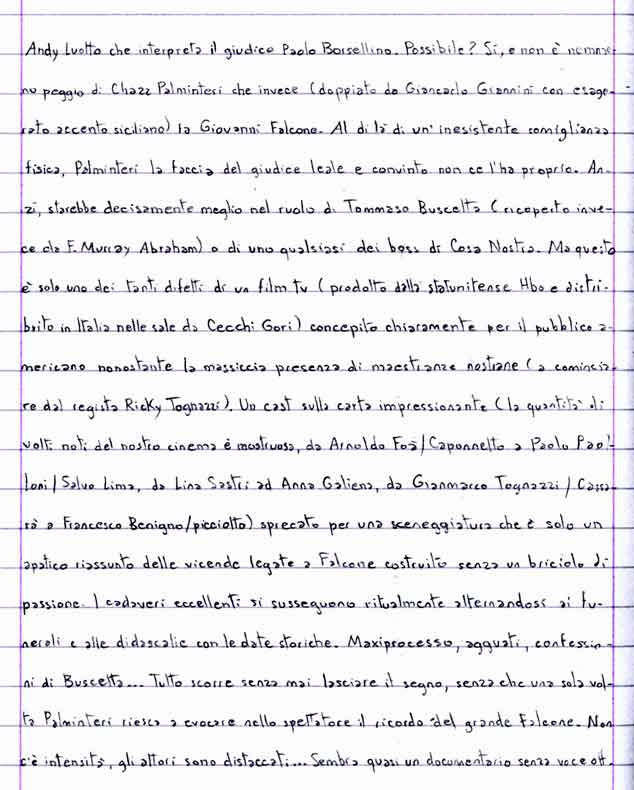 Andy Luotto che interpreta il giudice Paolo Borsellino. Possibile? Sì, e non è nemme-
no peggio di Chazz Palminteri che invece (doppiato da Giancarlo Giannini con esage-
rato accento siciliano) fa Giovanni Falcone. Al di là di un'inesistente somiglianza
fisica, Palminteri la faccia del giudice leale e convinto non ce l'ha proprio. An-
zi, starebbe decisamente meglio nel ruolo di Tommaso Buscetta (ricoperto inve-
ce da F. Murray Abraham) o di uno qualsiasi dei boss di Cosa Nostra. Ma questo
è solo uno dei tanti difetti di un film tv (prodotto dalla statunitense Hbo e distri-
buito in Italia nelle sale da Cecchi Gori) concepito chiaramente per il pubblico a-
mericano nonostante la massiccia presenza di maestranze nostrane (a comincia-
re dal regista Ricky Tognazzi). Un cast sulla carta impressionante (la quantità di
volti noti del nostro cinema è mostruosa, da Arnoldo Foà/Caponnetto a Paolo Pao-
loni/Salvo Lima, da Lina Sastri ad Anna Galiena, da Gianmarco Tognazzi/Cassa-
rà a Francesco Benigno/picciotto) sprecato per una sceneggiatura che è solo un
apatico riassunto delle vicende legate a Falcone costruito senza un briciolo di
passione. I cadaveri eccellenti si susseguono ritualmente alternandosi ai fu-
nerali e alle didascalie con le date storiche. Maxiprocesso, agguati, confessio-
ni di Buscetta... Tutto scorre senza mai lasciare il segno, senza che una sola vol-
ta Palminteri riesca a evocare nello spettatore il ricordo del grande Falcone. Non
c'è intensità, gli attori sono distaccati... Sembra quasi un documentario senza voce off.